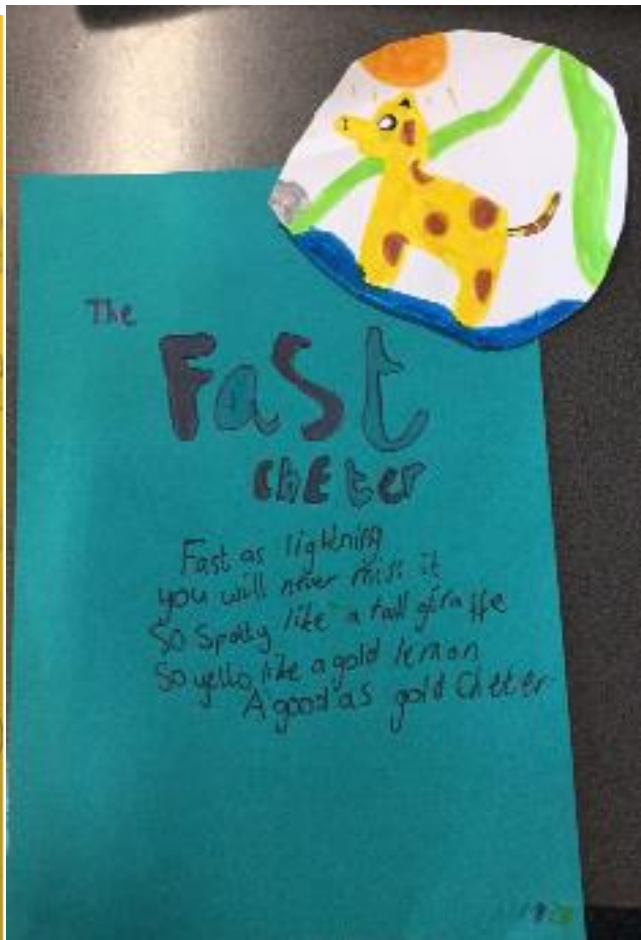 The
FaSt
chEter
Fast as lightning
you will never miss it
So Spotty like a tall giraffe
So yello like a gold lemon
A good as gold Cheter